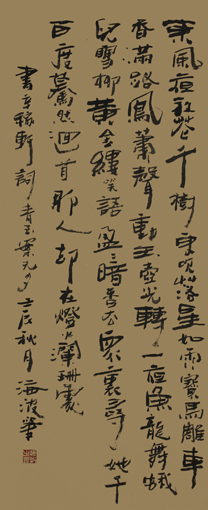 東風夜放花千樹更吹落星如雨寶馬雕車
香滿路鳳簫聲動玉壺光轉一夜魚龍舞蛾
兒雪柳黃金縷笑語盈盈暗香去眾裏尋她千
百度驀然迴首那人却在燈火闌珊處
書辛稼軒詞青玉案元夕壬辰秋月海波筆